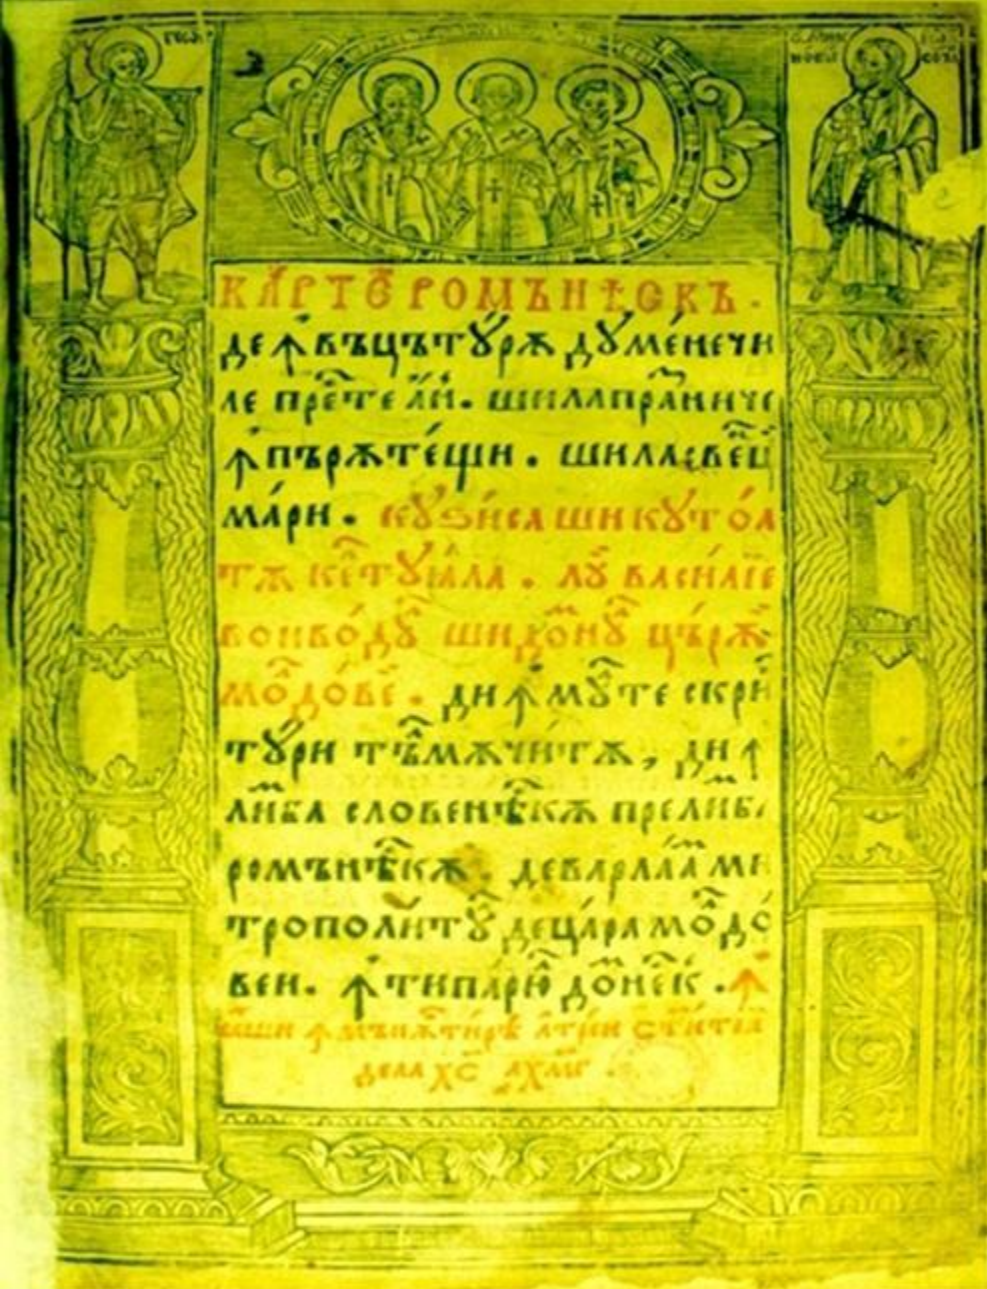 КАРТЕ РОМѪНѢСКЪ.
де ꙟвъцътꙋрѫ дꙋменечи
ле престе ан. ши ла праꙁниче
ꙟпърѫтещи. ши ла свенци
мари. кꙋ ꙁиса ши кꙋ тоа
тѫ келтꙋꙗла. лꙋ василїе
воивѡдꙋл ши домнꙋл църѫй
молдовей. дин мꙋлте скрип
тꙋри тълмѫчитѫ, дин
лимба словенѣскѫ пре лимба
ромънѣскѫ. де варлаам ми
трополитꙋл де цара молдо
вей. ꙟ типарюл домнеск. ꙟ
ꙗши ꙟ мънѫстирѣ а трей с҃титєли
дела х҃с ах҃мг.